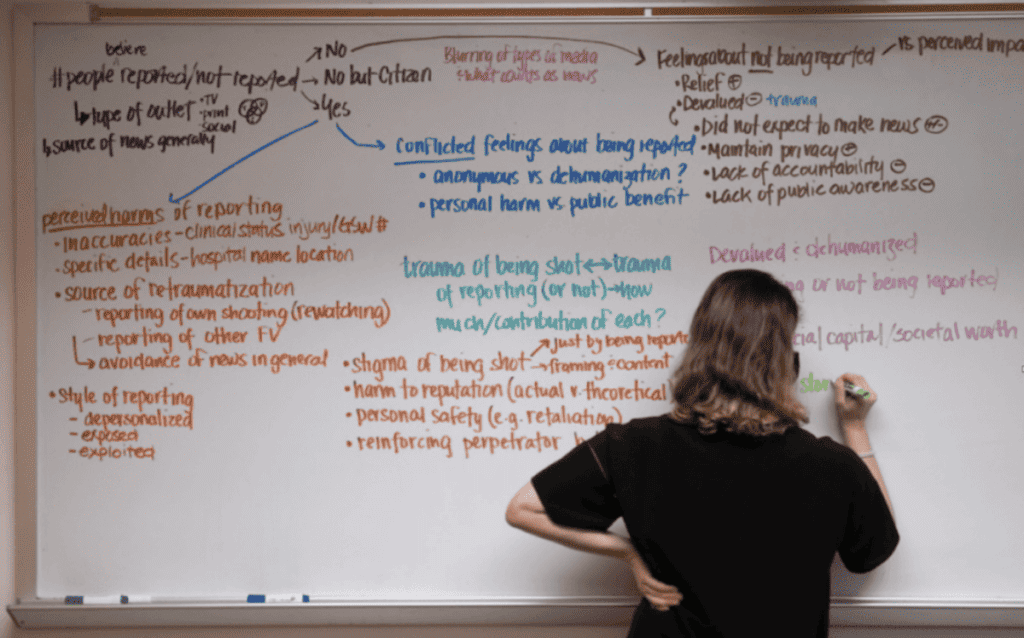 believe
#people reported/not reported
→ No
→ No but Citizen
→ Yes
↳type of outlet
•TV
•print
social
↳source of news generally
Blurring of types of media
what counts as news
Feelings about not being reported
is perceived impa
•Relief +
•Devalued - trauma
•Did not expect to make news
•Maintain privacy
•Lack of accountability -
•Lack of public awareness -
Conflicted feelings about being reported
• anonymous vs dehumanization?
• personal harm vs public benefit
perceived harms of reporting
•Inaccuracies-clinical status, injury/GSW #
•specific details-hospital name location
•source of retraumatization
-reporting of own shooting (rewatching)
-reporting of other FV
↳avoidance of news in general
•Style of reporting
- depersonalized
- exposed
- exploited
trauma of being shot↔trauma
of reporting (or not)→how
much/contribution of each?
•stigma of being shot
just by being reporte
→framing content
•harm to reputation (actual v. theoretical
•personal safety (e.g. retaliation)
•reinforcing perpetrator
Devalued dehumanized
or not being reported
cial capital/societal worth